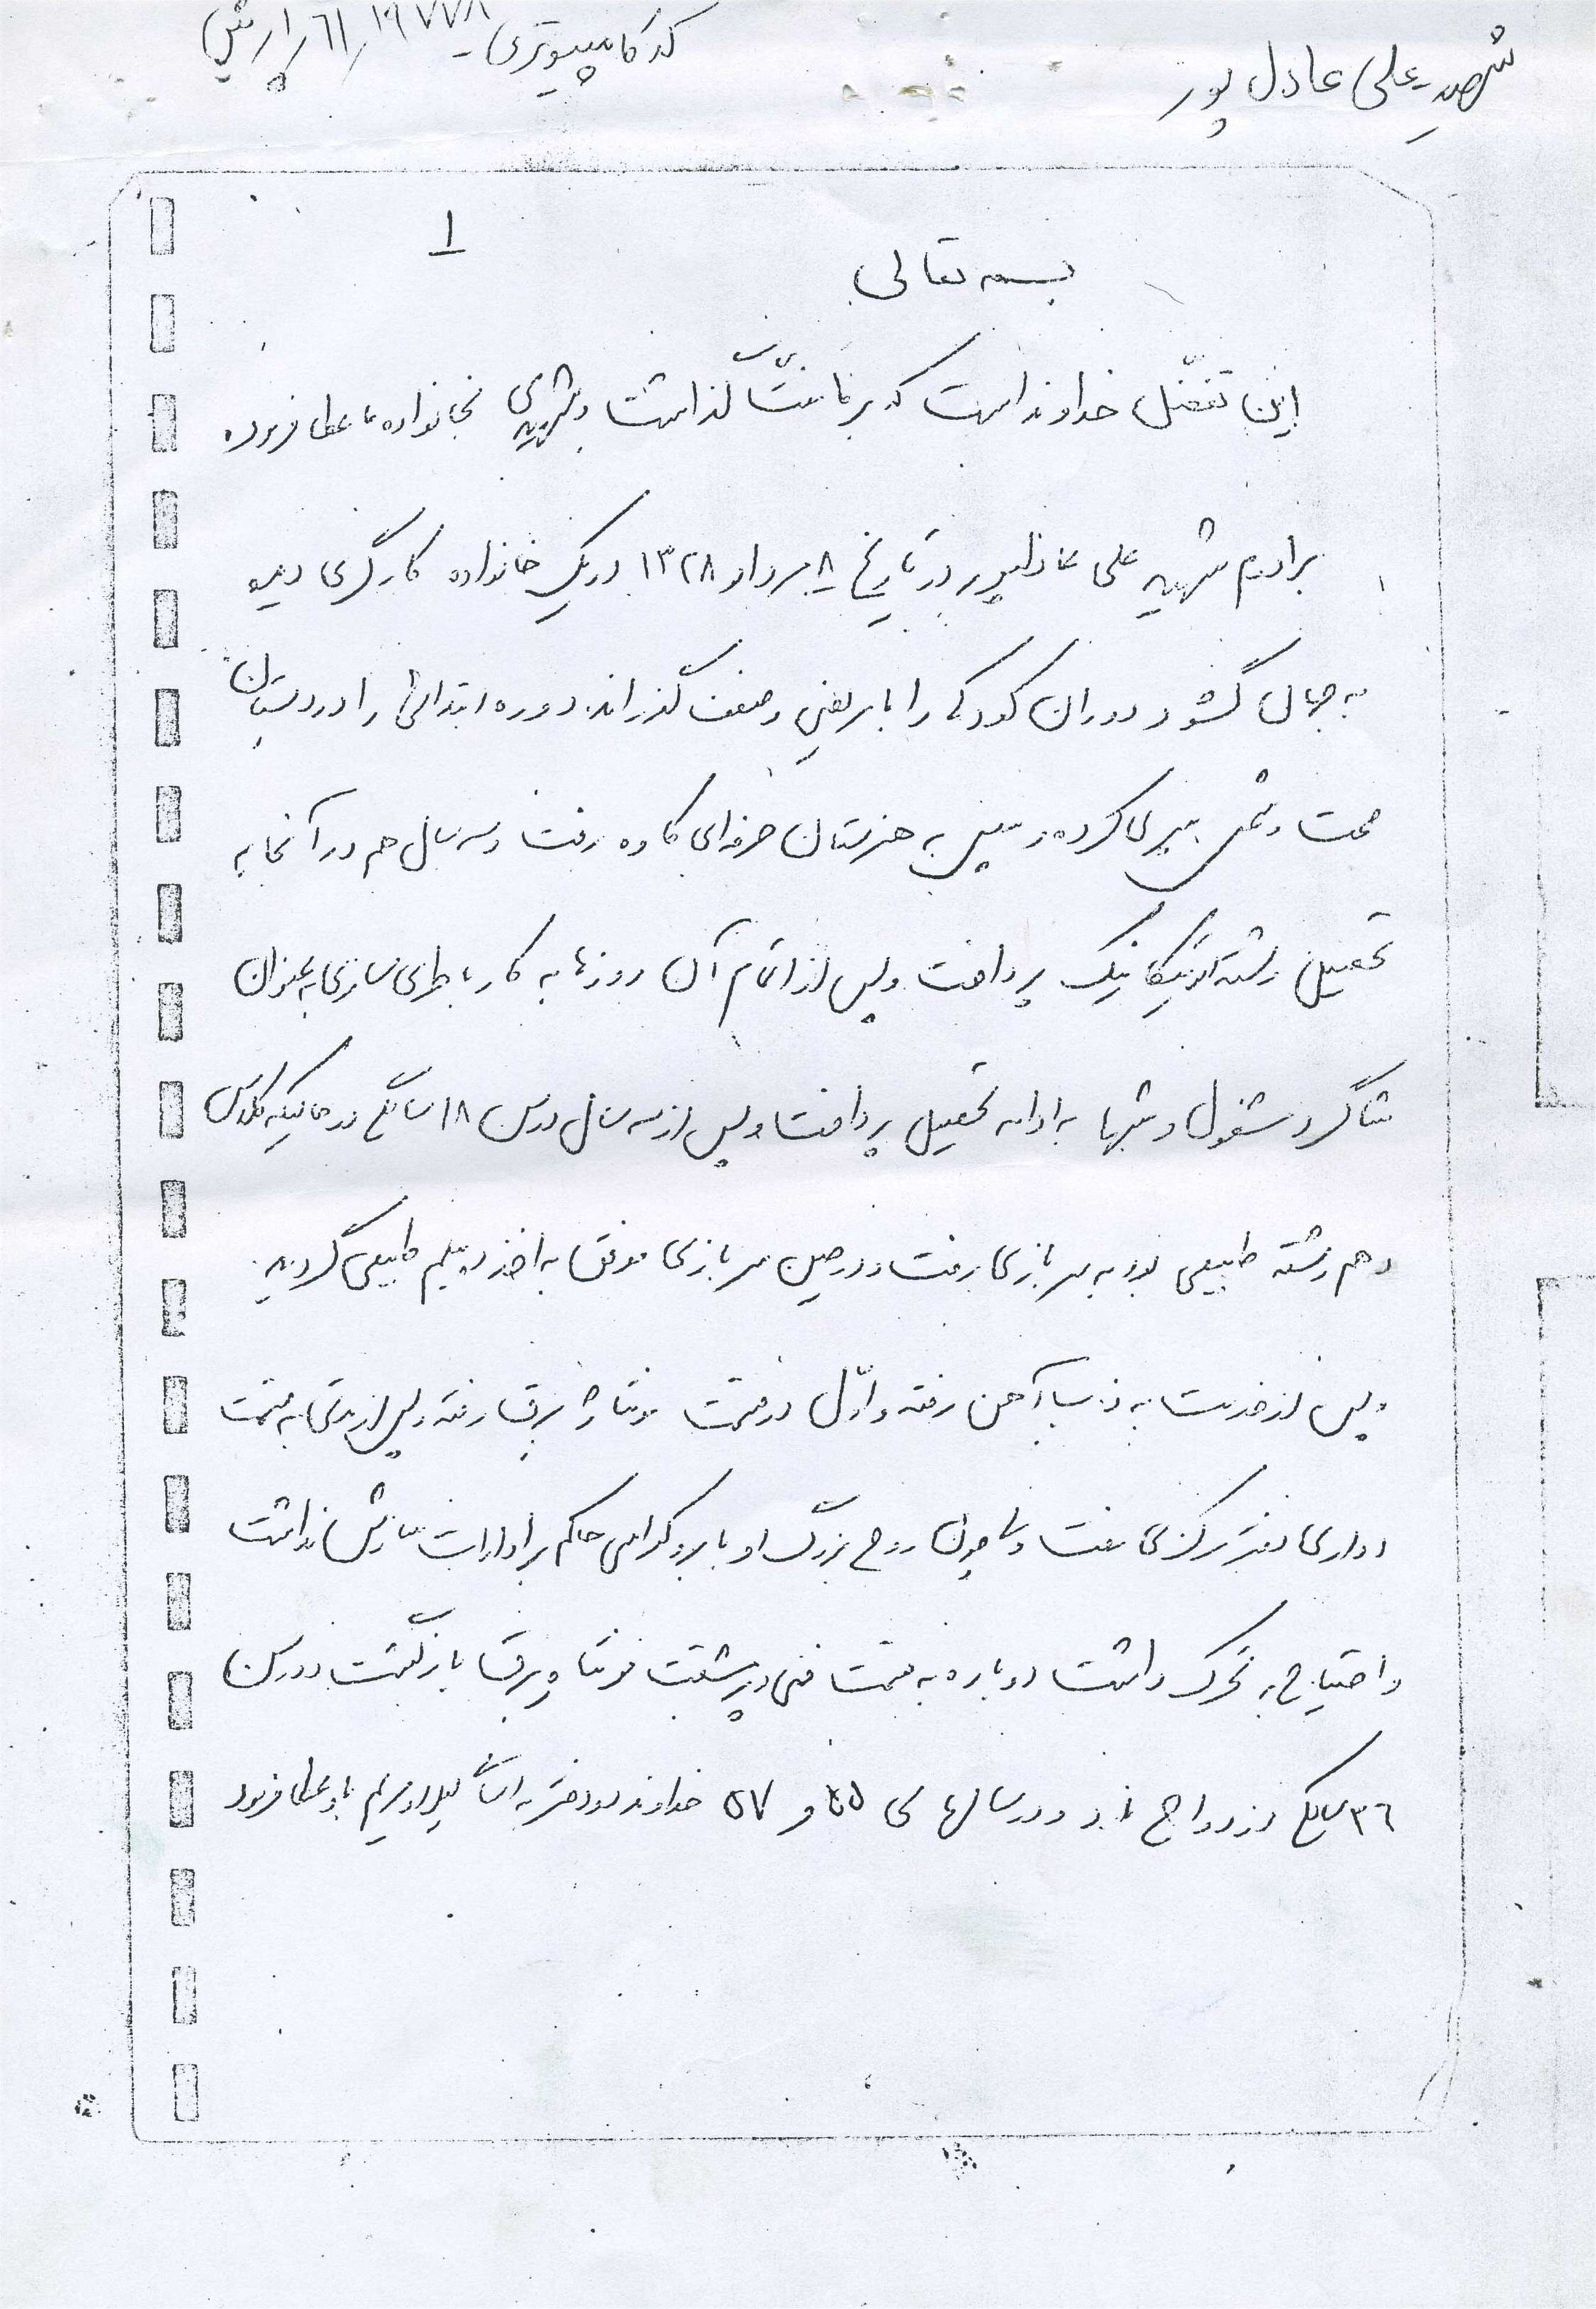 شهید علی عادل پور
کد کامپیوتری - ۱۹۷۷۸
۱
بسمه تعالی
این تفضّل خداوند است که بر ما منّت گذاشت و شهیدی بخانواده ما عطا فرمود.
برادرم شهید علی عادلپور در تاریخ ۸ مرداد ۱۳۲۸ در یک خانواده کارگری دیده
به جهان گشود دوران کودکی را با مریضی و ضعف گذراند. دوره ابتدائی را در دبستان
صحت و پسپری کرده و سپس به هنرستان حرفه‌ای کاوه رفت و سه سال هم در آنجا به
تحصیل رشته اتومکانیک پرداخت و پس از اتمام آن روزها به کار باطری سازی به عنوان
شاگرد مشغول و شبها به ادامه تحصیل پرداخت و پس از سه سال در سن ۱۸ سالگی در حالیکه کلاس
دهم رشته طبیعی بود به سربازی رفت و در حین سربازی موفق به اخذ دیپلم طبیعی گردید.
و پس از خدمت به ذوب آهن رفته و اوّل در قسمت مونتاژ برق رفته و پس از مدتی به قسمت
اداری دفتر مرکزی رفت ولی چون روح بزرگ او با بروکراسی حاکم بر ادارات سازش نداشت
و احتیاج به تحرک داشت دوباره به قسمت فنی و پرمشقت مونتاژ برق بازگشت و در سن
۲۶ سالگی ازدواج نمود و در سالهای ۵۵ و ۵۷ خداوند دو دختر به اسامی لیلا و مریم باو عطا فرمود